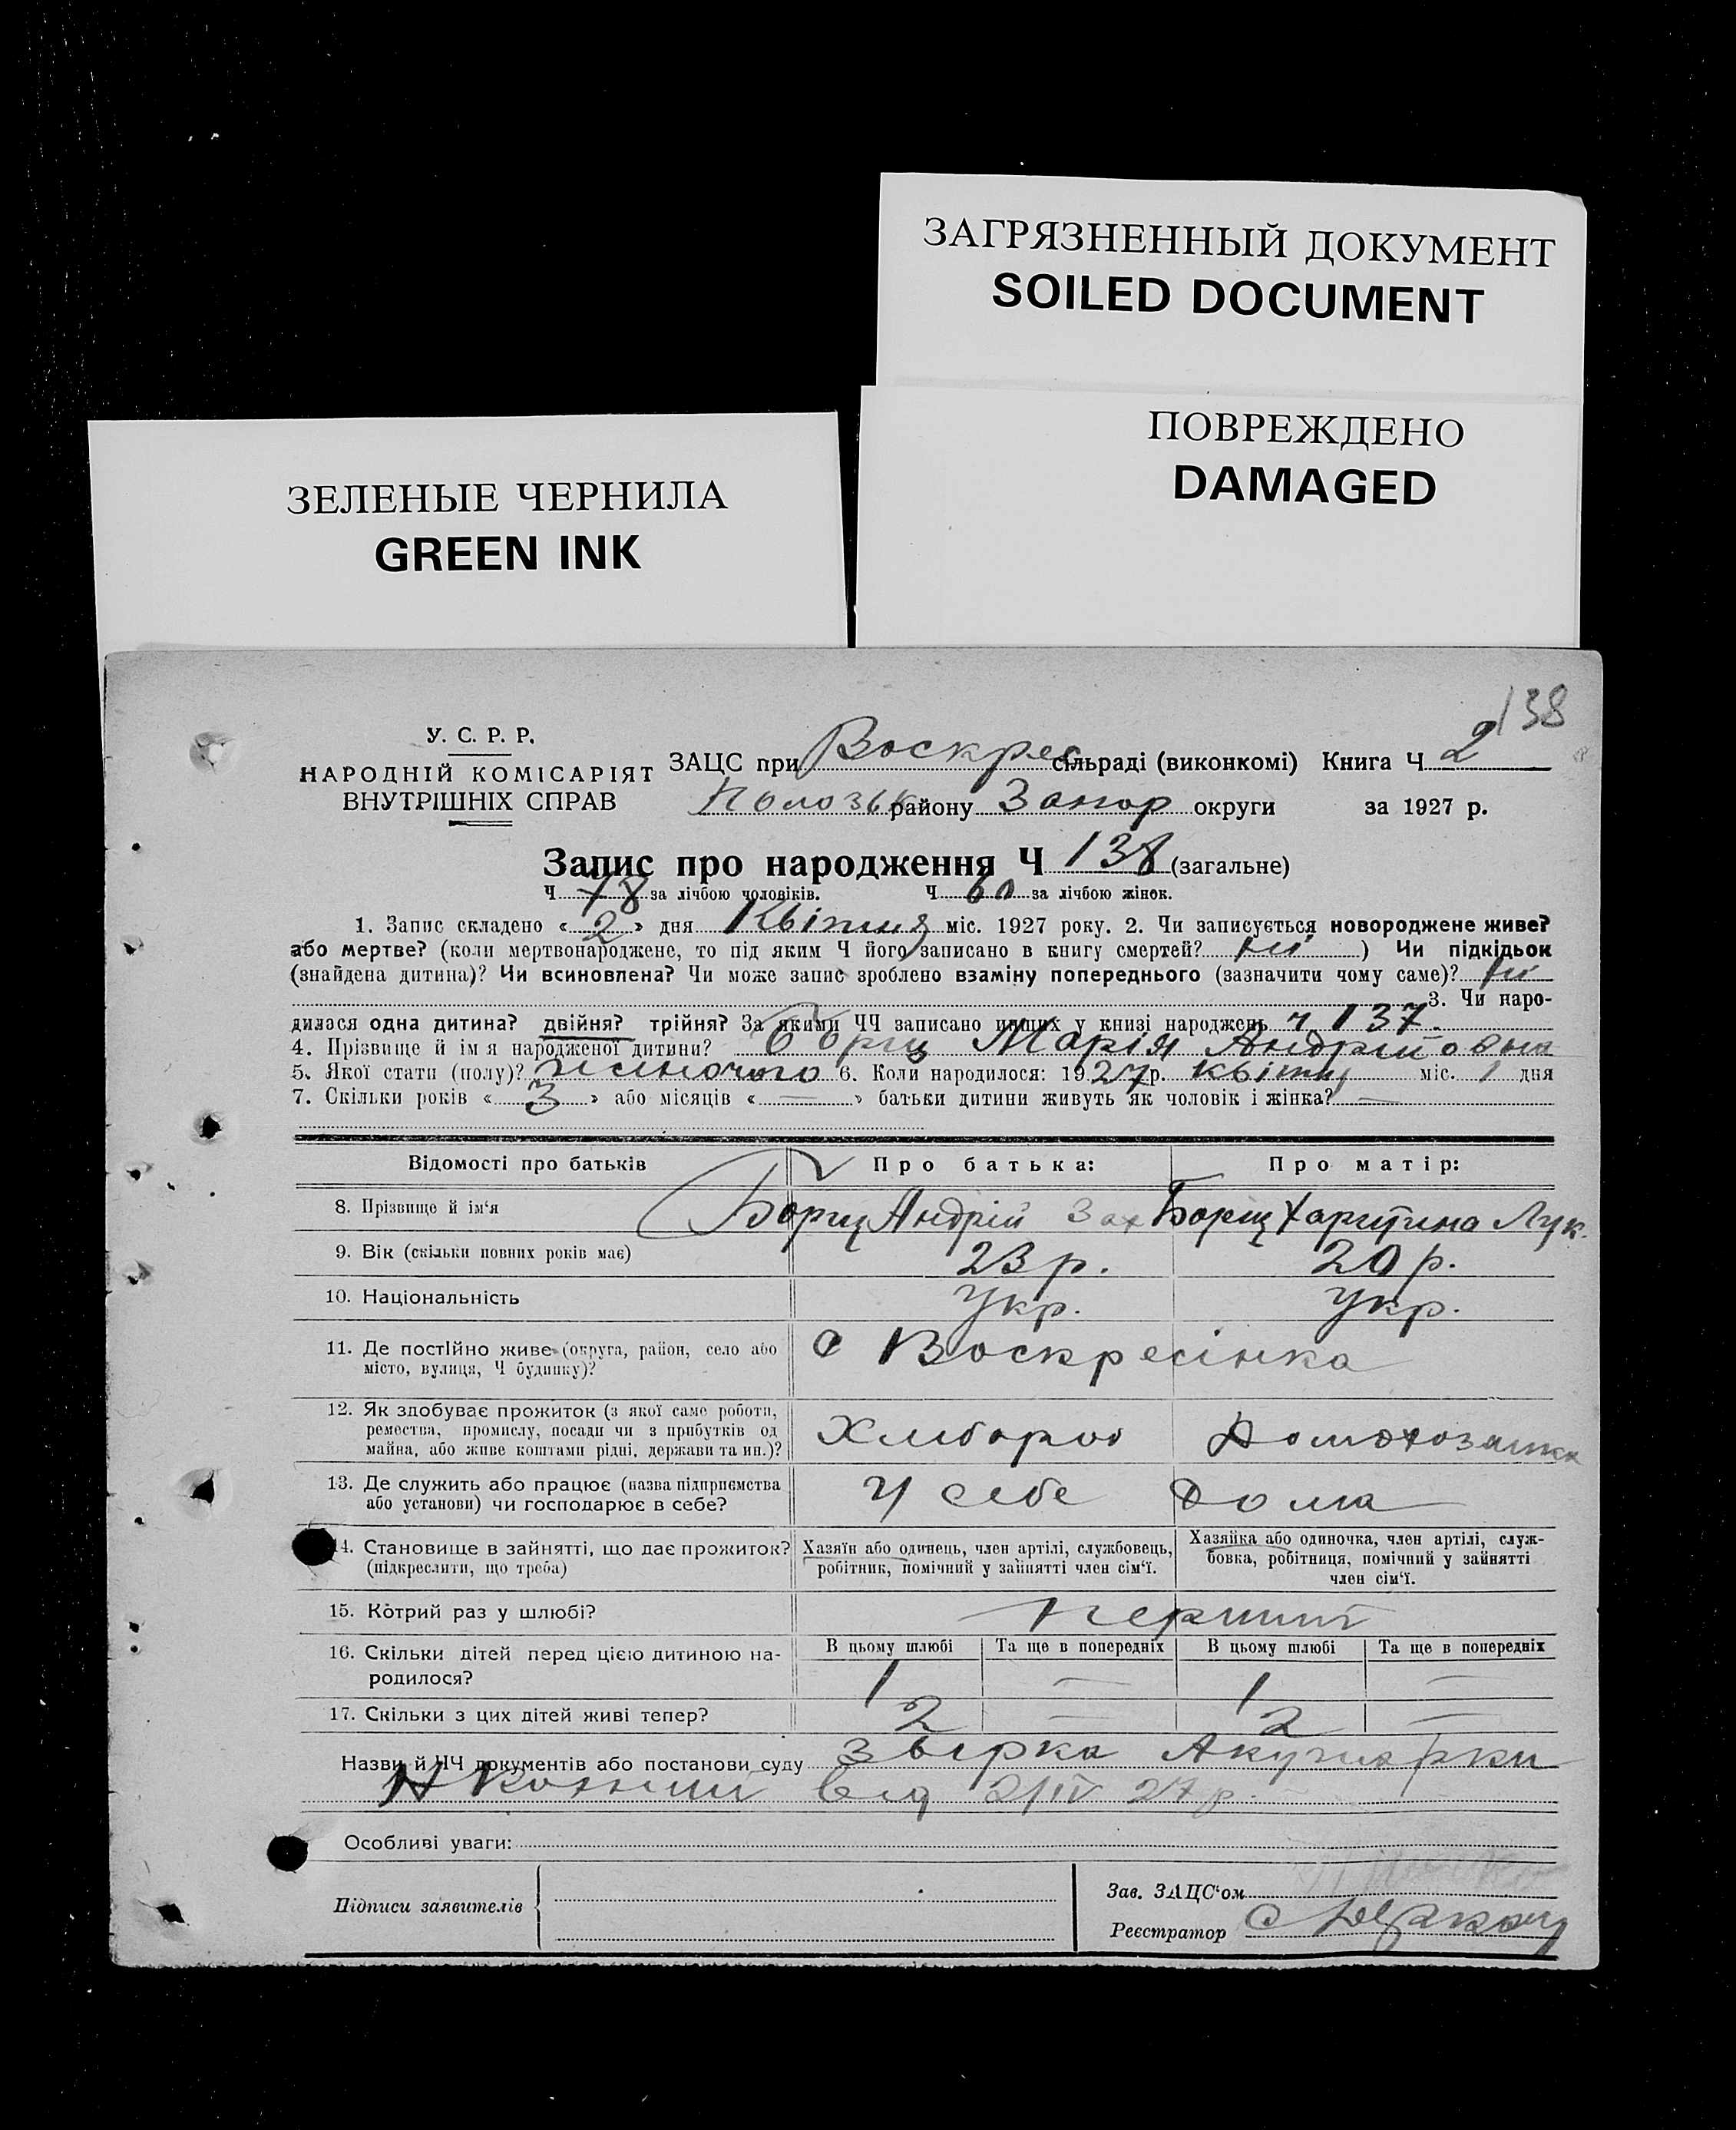 ЗАГРЯЗНЕННЫЙ ДОКУМЕНТ
SOILED DOCUMENT
ПОВРЕЖДЕНО
DAMAGED
ЗЕЛЕНЫЕ ЧЕРНИЛА
GREEN INK
138
У. С. Р. Р.
НАРОДНІЙ КОМІСАРІЯТ
ВНУТРІШНІХ СПРАВ
ЗАЦС при Воскрес сільраді (виконкомі) Книга Ч 2
Полозьк району Запор округи за 1927 р.
Запис про народження Ч 138 (загальне)
Ч 78 за лічбою чоловіків. Ч 60 за лічбою жінок.
1. Запис складено « 2 » дня Квітня міс. 1927 року. 2. Чи записується новороджене живе?
або мертве? (коли мертвонароджене, то під яким Ч його записано в книгу смертей? ні ) Чи підкідьок
(знайдена дитина)? Чи всиновлена? Чи може запис зроблено взаміну попереднього (зазначити чому саме)? ні
3. Чи наро-
дилося одна дитина? двійня? трійня? За якими ЧЧ записано инших у книзі народжень ч 137.
4. Прізвище й ім я народженої дитини? Борщ Марія Андрійовна
5. Якої стати (полу)? жіночого 6. Коли народилося: 1927 р. квітня міс. 1 дня
7. Скільки років « 3 » або місяців « — » батьки дитини живуть як чоловік і жінка? —
Відомості про батьків Про батька: Про матір:
8. Прізвище й ім'я Борщ Андрій Зах Борщ Харитина Лук.
9. Вік (скільки повних років має) 23 р. 20 р.
10. Національність Укр. Укр.
11. Де постійно живе (округа, район, село або
місто, вулиця, Ч будинку)? с Воскресінка
12. Як здобуває прожиток (з якої саме роботи,
ремества, промислу, посади чи з прибутків од
майна, або живе коштами рідні, держави та ин.)? Хлибороб
13. Де служить або працює (назва підприємства
або установи) чи господарює в себе? У себе Дома
14. Становище в зайнятті, що дає прожиток?
(підкреслити, що треба)
Хазяїн або одинець, член артілі, службовець,
робітник, помічний у зайнятті член сім'ї.
Хазяйка або одиночка, член артілі, служ-
бовка, робітниця, помічний у зайнятті
член сім'ї.
15. Котрий раз у шлюбі? перший
В цьому шлюбі Та ще в попередніх В цьому шлюбі Та ще в попередніх
16. Скільки дітей перед цією дитиною на-
родилося? 1 — 1 —
17. Скільки з цих дітей живі тепер? 2 — 2 —
Назви й ЧЧ документів або постанови суду Звірка Акушерки
від 2/IV 27 р.
Особливі уваги:
Підписи заявителів
Зав. ЗАЦС'ом
Реєстратор